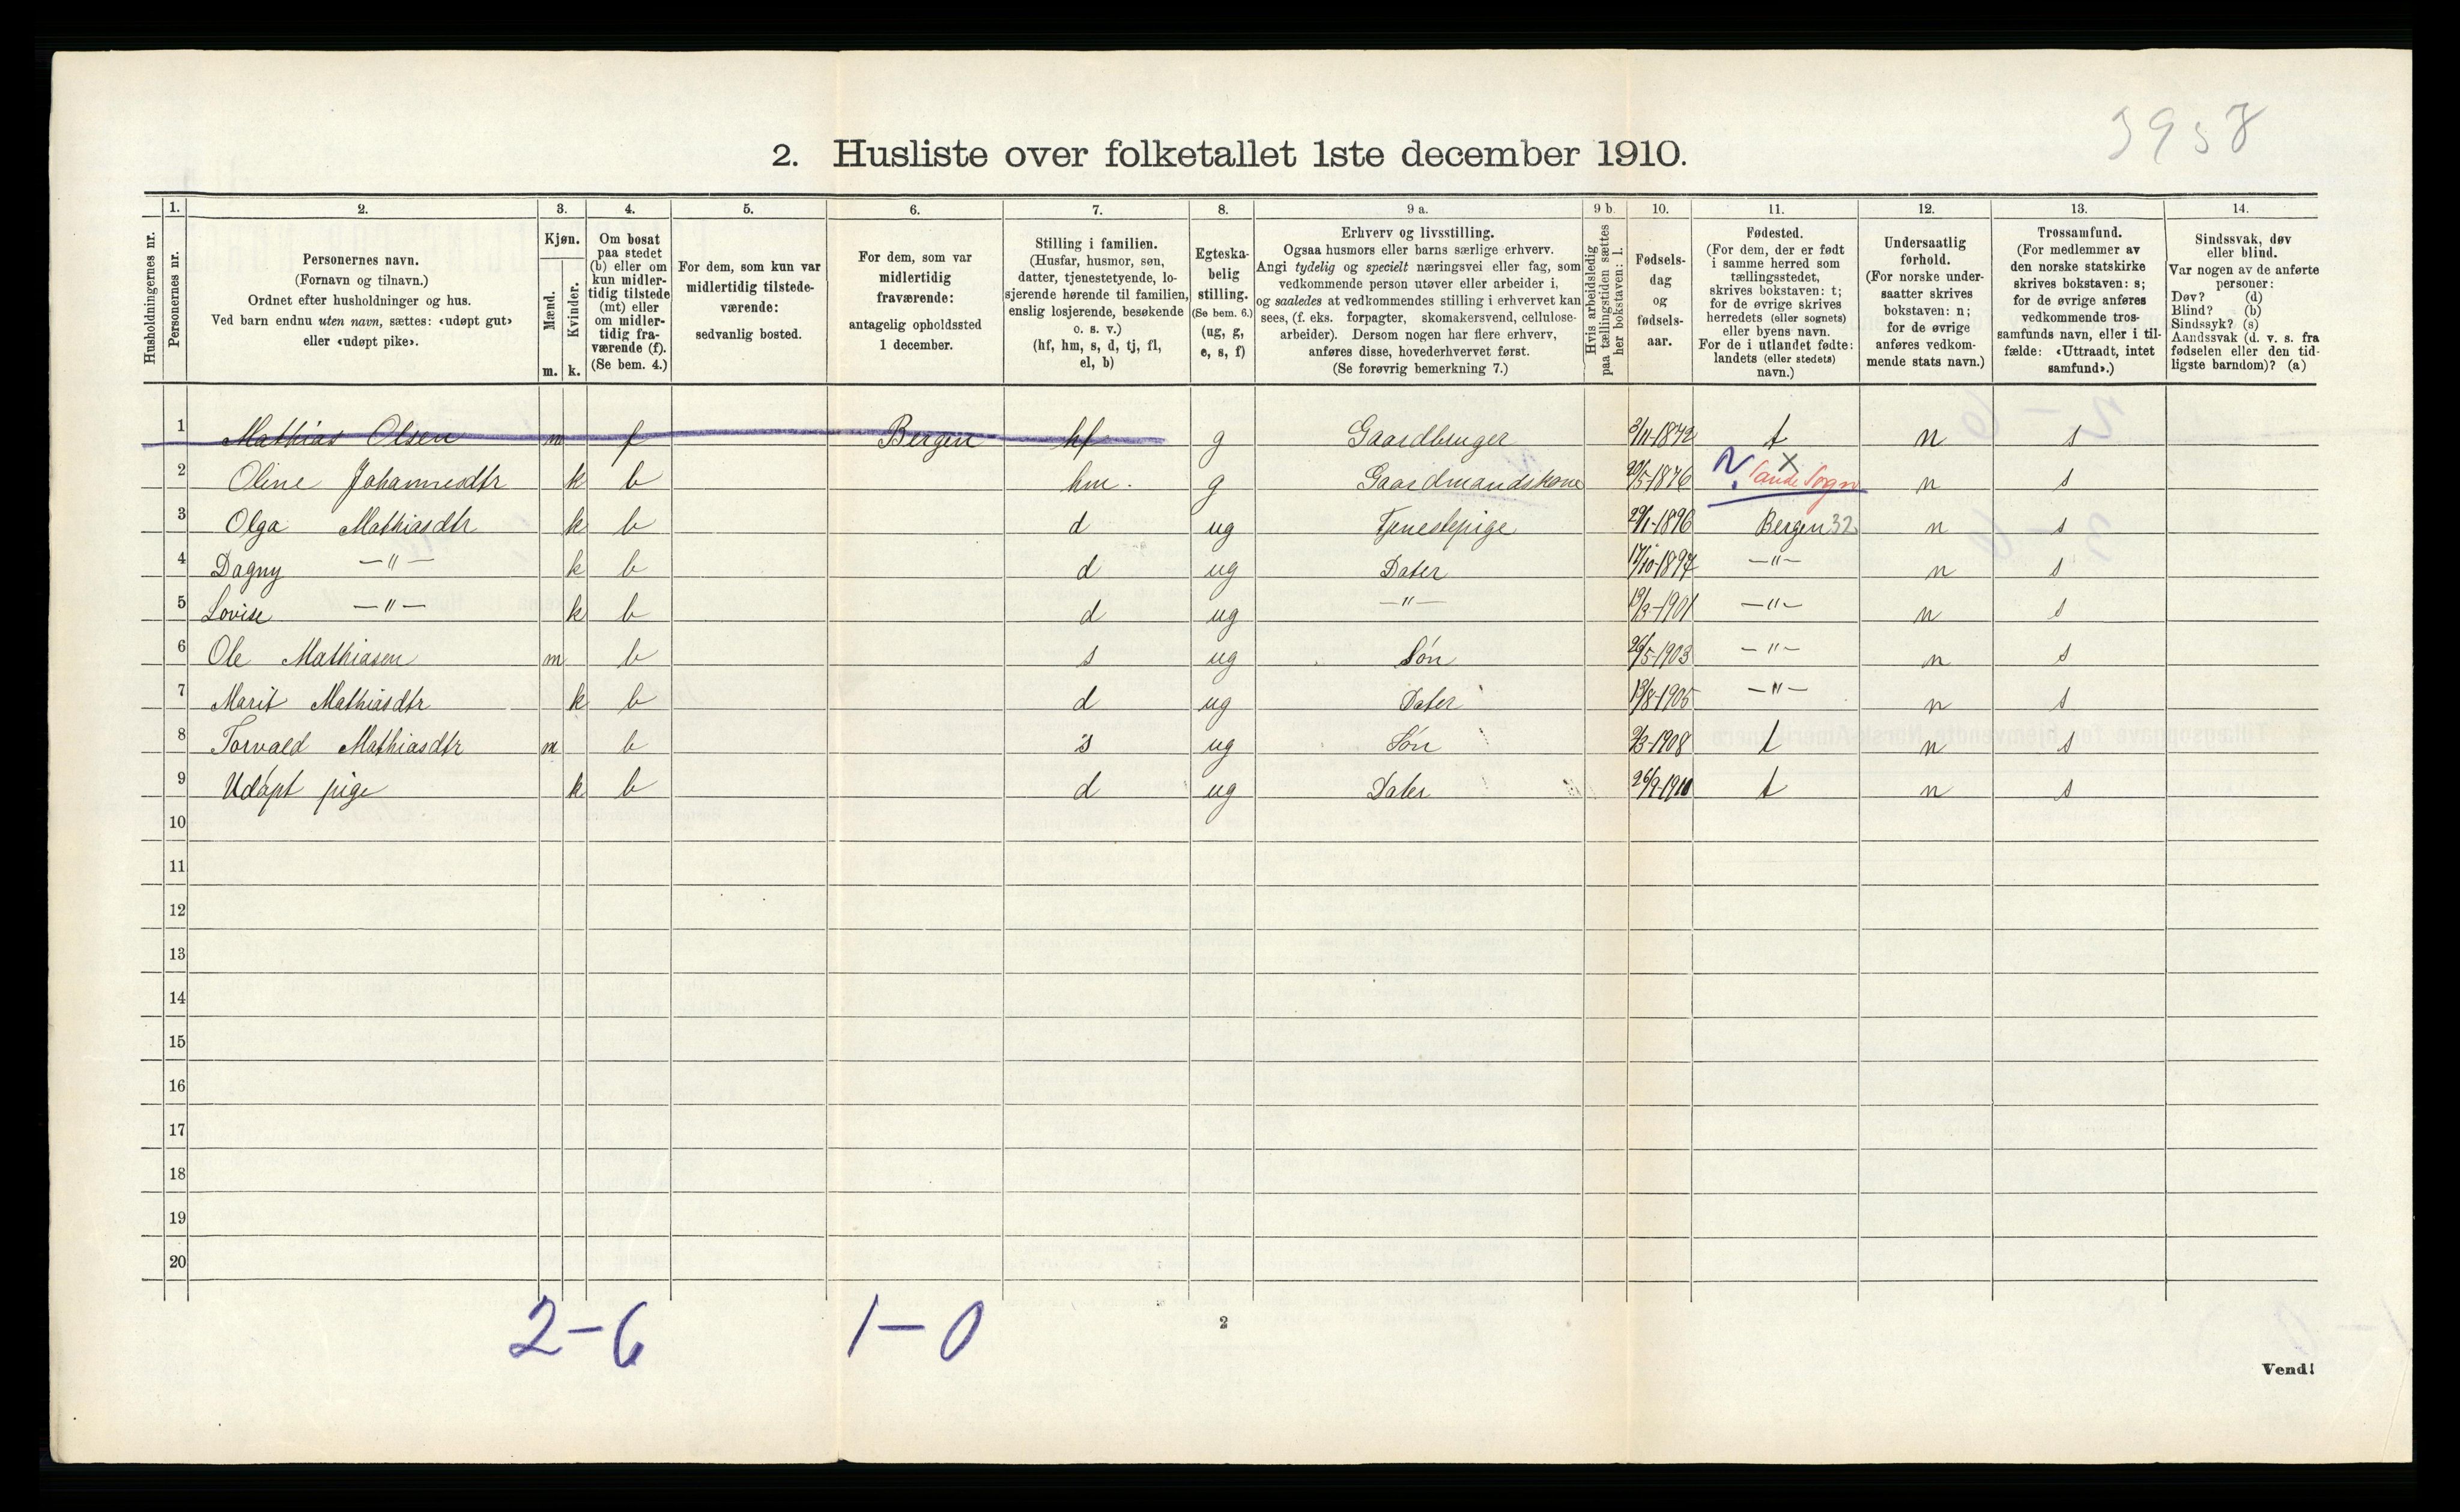 3958
2. Husliste over folketallet 1ste december 1910.
Husholdningernes nr.
1.
Personernes nr.
2.
Personernes navn.
(Fornavn og tilnavn.)
Ordnet efter husholdninger og hus.
Ved barn endnu uten navn, sættes: «udøpt gut»
eller «udøpt pike».
3.
Kjøn.
Mænd.
Kvinder.
m. k.
4.
Om bosat
paa stedet
(b) eller om
kun midler-
tidig tilstede
(mt) eller
om midler-
tidig fra-
værende (f).
(Se bem. 4.)
5.
For dem, som kun var
midlertidig tilstede-
værende:
sedvanlig bosted.
6.
For dem, som var
midlertidig
fraværende:
antagelig opholdssted
1 december.
7.
Stilling i familien.
(Husfar, husmor, søn,
datter, tjenestetyende, lo-
sjerende hørende til familien,
enslig losjerende, besøkende
o. s. v.)
(hf, hm, s, d, tj, fl,
el, b)
8.
Egteska-
belig
stilling.
(Se bem. 6.)
(ug, g,
e, s, f)
9 a.
Erhverv og livsstilling.
Ogsaa husmors eller barns særlige erhverv.
Angi tydelig og specielt næringsvei eller fag, som
vedkommende person utøver eller arbeider i,
og saaledes at vedkommendes stilling i erhvervet kan
sees, (f. eks. forpagter, skomakersvend, cellulose-
arbeider). Dersom nogen har flere erhverv,
anføres disse, hovederhvervet først.
(Se forøvrig bemerkning 7.)
9 b.
Hvis arbeidsledig
paa tællingstiden sættes
her bokstaven: l.
10.
Fødsels-
dag
og
fødsels-
aar.
11.
Fødested.
(For dem, der er født
i samme herred som
tællingsstedet,
skrives bokstaven: t;
for de øvrige skrives
herredets (eller sognets)
eller byens navn.
For de i utlandet fødte:
landets (eller stedets)
navn.)
12.
Undersaatlig
forhold.
(For norske under-
saatter skrives
bokstaven: n;
for de øvrige
anføres vedkom-
mende stats navn.)
13.
Trossamfund.
(For medlemmer av
den norske statskirke
skrives bokstaven: s;
for de øvrige anføres
vedkommende tros-
samfunds navn, eller i til-
fælde: «Uttraadt, intet
samfund».)
14.
Sindssvak, døv
eller blind.
Var nogen av de anførte
personer:
Døv? (d)
Blind? (b)
Sindssyk? (s)
Aandssvak (d. v. s. fra
fødselen eller den tid-
ligste barndom)? (a)
1 Mathias Olsen m f Bergen hf g Gaardbruger 3/11-1872 t n s
2 Oline Johannesdtr k b hm. g Gaardmandskone 20/5-1876 Sogn n s
3 Olga Mathiasdtr k b d ug Tjenestepige 29/1-1896 Bergen 32 n s
4 Dagny —"— k b d ug Dater 17/10-1897 —"— n s
5 Lovise —"— k b d ug —"— 19/3-1901 —"— n s
6 Ole Mathiasen m b s ug Søn 26/5-1903 —"— n s
7 Marit Mathiasdtr k b d ug Dater 13/8-1905 —"— n s
8 Torvald Mathiasdtr m b s ug Søn 9/3-1908 t n s
9 Udøpt pige k b d ug Dater 26/9-1910 t n s
10
11
12
13
14
15
16
17
18
19
20
2-6 1-0
2
Vend!